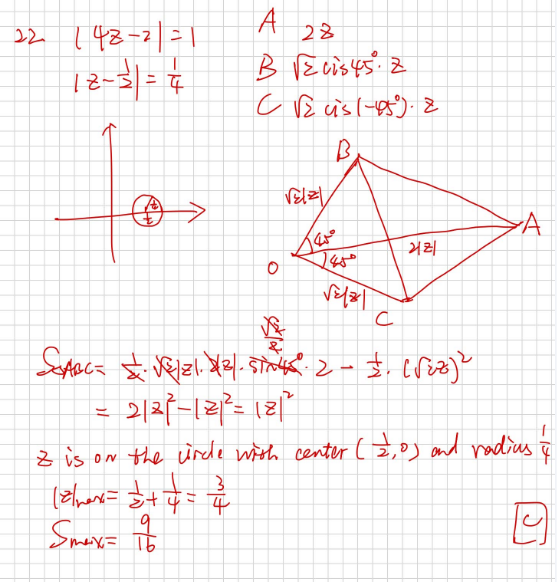 22. |4z-2|=1
|z-1/2|=1/4
A 2z
B √2 cis 45°·z
C √2 cis(-45°)·z
B
√2|z|
A
45°
2|z|
O
45°
√2|z|
C
S△ABC = 1/2·√2|z|·2|z|·sin45°·2 - 1/2·(√2z)²
√2/2
= 2|z|²-|z|²=|z|²
z is on the circle with center (1/2,0) and radius 1/4
|z|max= 1/2+1/4=3/4
Smax= 9/16
C